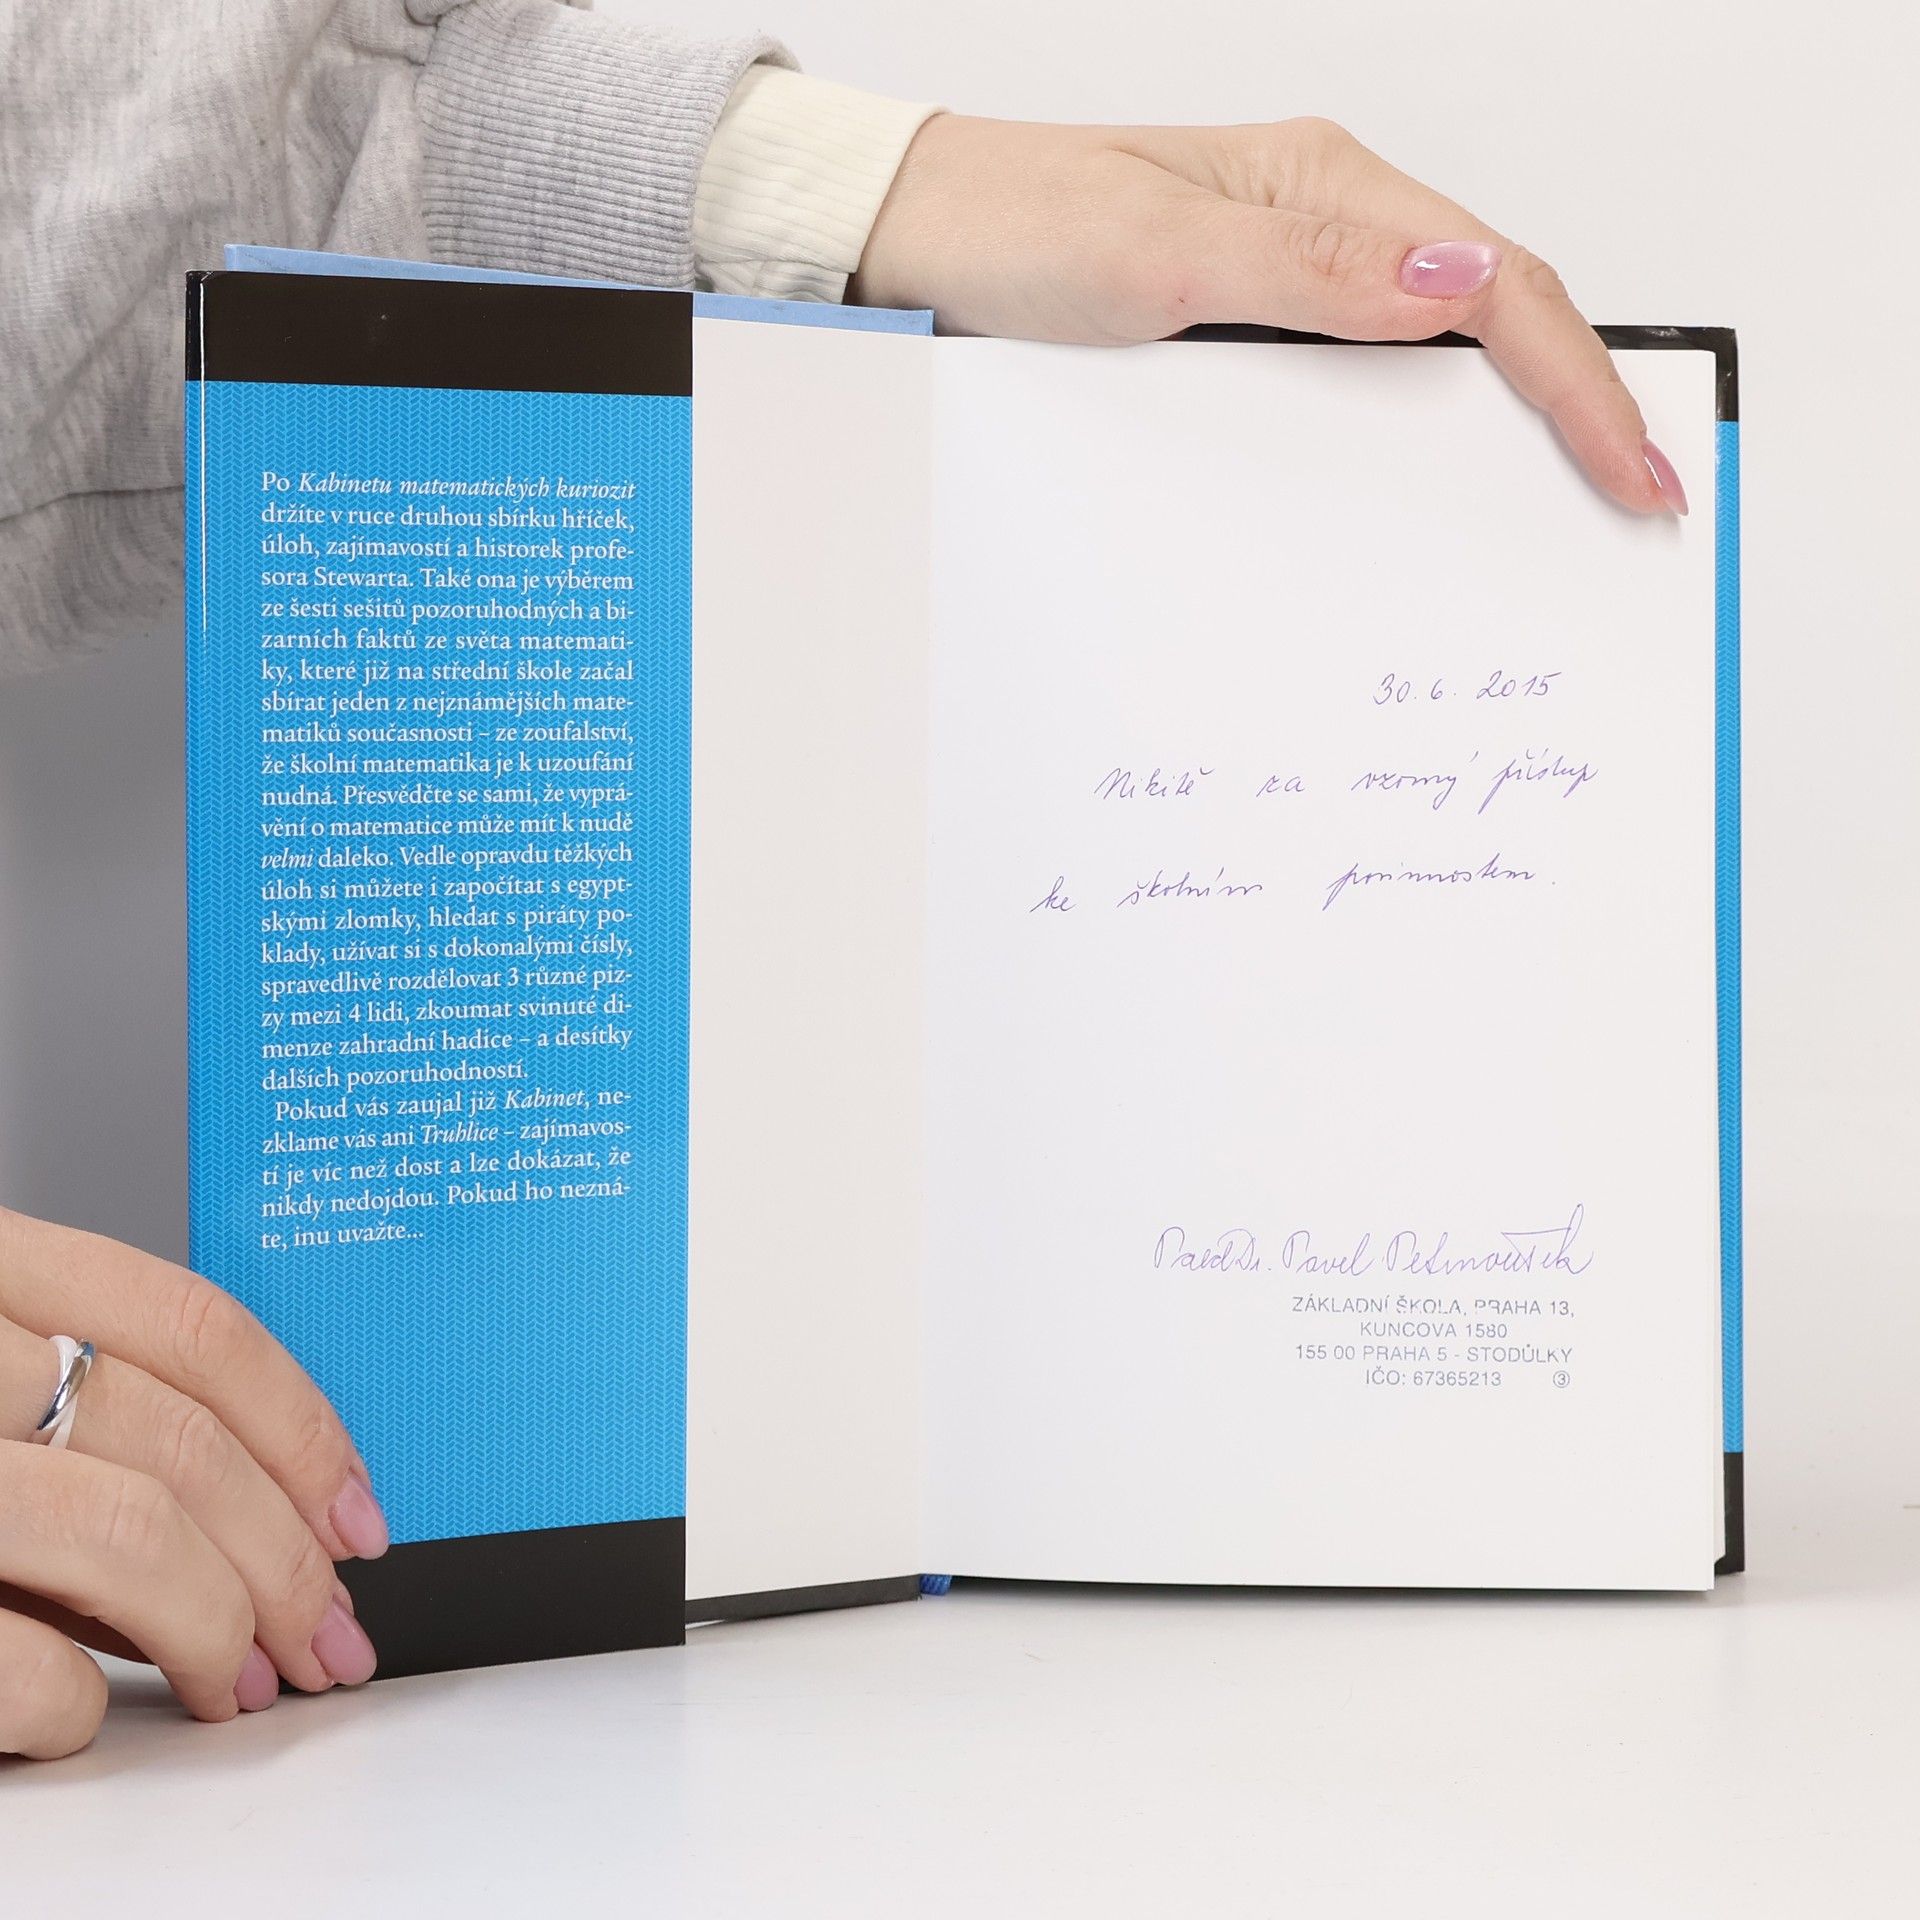 Po Kabinetu matematických kuriozit
držíte v ruce druhou sbírku hříček,
úloh, zajímavostí a historek profe-
sora Stewarta. Také ona je výběrem
ze šesti sešitů pozoruhodných a bi-
zarních faktů ze světa matemati-
ky, které již na střední škole začal
sbírat jeden z nejznámějších mate-
matiků současnosti – ze zoufalství,
že školní matematika je k uzoufání
nudná. Přesvědčte se sami, že vyprá-
vění o matematice může mít k nudě
velmi daleko. Vedle opravdu těžkých
úloh si můžete i započítat s egypt-
skými zlomky, hledat s piráty po-
klady, užívat si s dokonalými čísly,
spravedlivě rozdělovat 3 různé piz-
zy mezi 4 lidi, zkoumat svinuté di-
menze zahradní hadice – a desítky
dalších pozoruhodností.
Pokud vás zaujal již Kabinet, ne-
zklame vás ani Truhlice – zajímavos-
tí je víc než dost a lze dokázat, že
nikdy nedojdou. Pokud ho nezná-
te, inu uvažte...
30. 6. 2015
Nikitě za vzorný přístup
ke školním povinnostem.
PaedDr. Pavel Petrnoušek
ZÁKLADNÍ ŠKOLA, PRAHA 13,
KUNCOVA 1580
155 00 PRAHA 5 - STODŮLKY
IČO: 67365213 ③